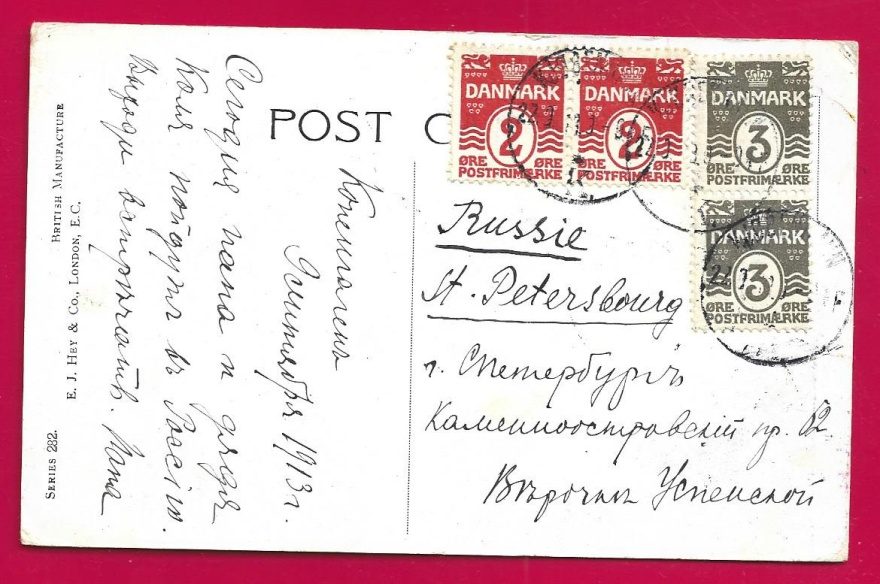 POST C
BRITISH MANUFACTURE
E. J. HEY & Co., LONDON, E.C.
SERIES 282.
Копенгагенъ
9 сентября 1913 г.
Сегодня папа и дядя
Коля пойдутъ въ Россію.
Выходи встрѣчать. Папа
DANMARK
2
ØRE ØRE
POSTFRIMÆRKE
DANMARK
2
ØRE ØRE
POSTFRIMÆRKE
DANMARK
3
ØRE ØRE
POSTFRIMÆRKE
DANMARK
3
ØRE ØRE
POSTFRIMÆRKE
Russie
St. Petersbourg
г. СПетербургъ
Каменноостровскій пр. 62
Вѣрочкѣ Успенской